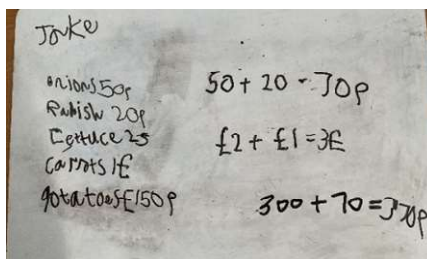 Jouke
onions 50p
Radish 20p
Lettuce 2£
carrots 1£
potatoes £150p
50 + 20 - 70p
£2 + £1 = 3£
300 + 70 = 370p